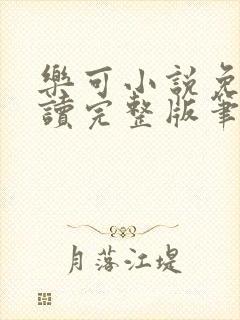 樂可小說免
讀完整版筆
月落江堤